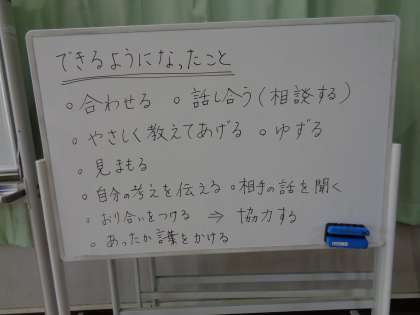 できるようになったこと
○ 合わせる ○ 話し合う(相談する)
○ やさしく教えてあげる ○ ゆずる
○ 見まもる
○ 自分の考えを伝える ○ 相手の話を聞く
○ おり合いをつける ⇒ 協力する
○ あったか言葉をかける